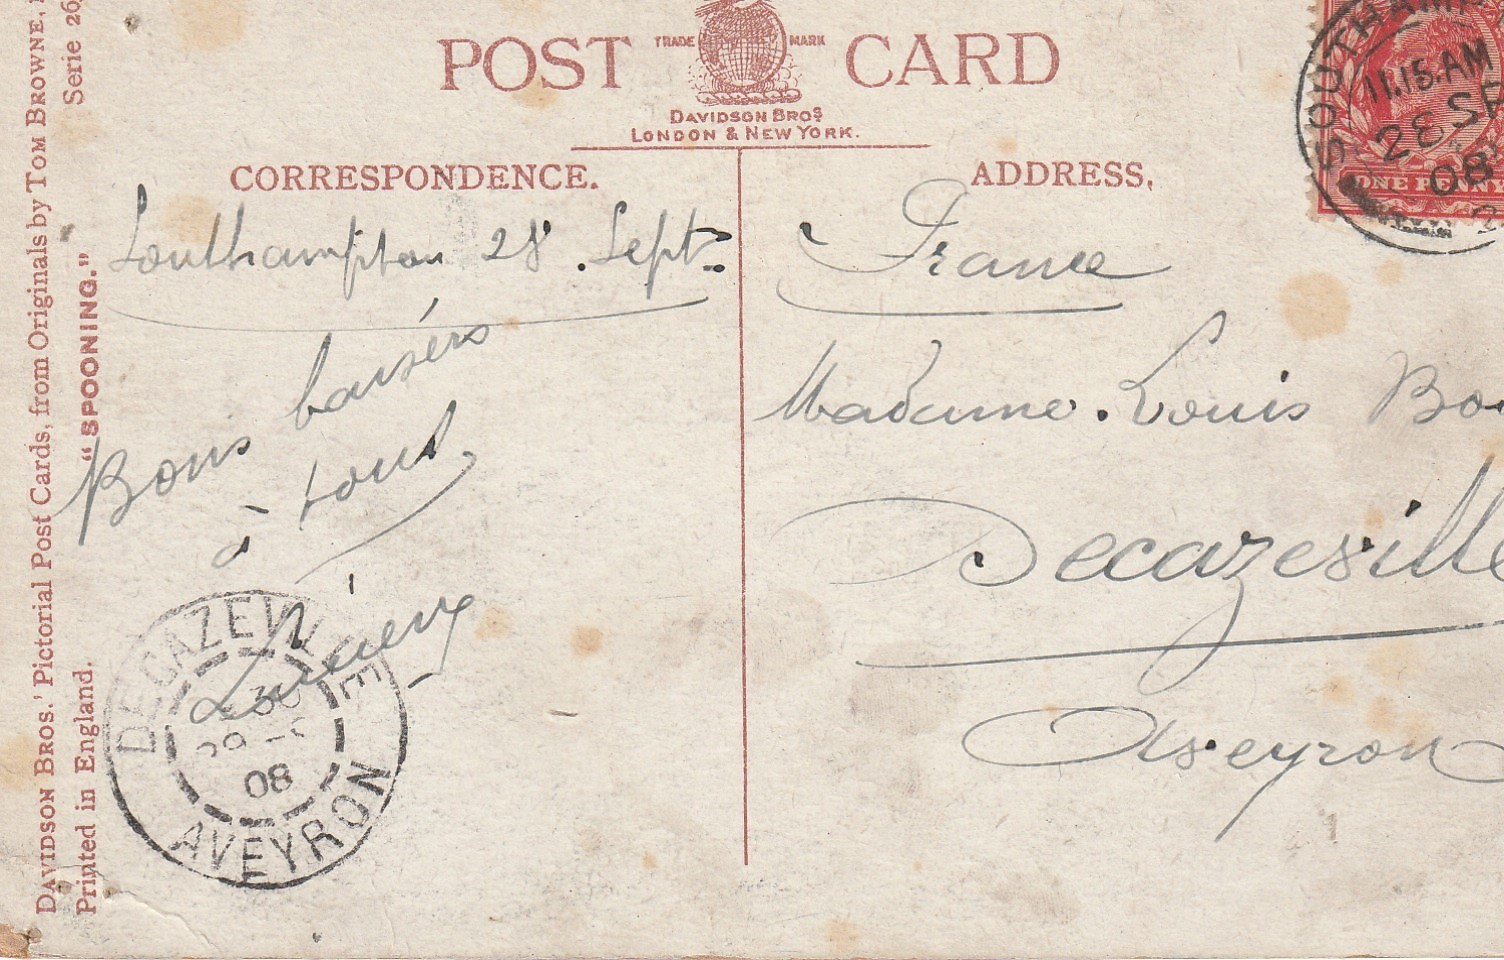 POST CARD
TRADE MARK
DAVIDSON BROS
LONDON & NEW YORK.
CORRESPONDENCE.
ADDRESS.
Southampton 28 Sept
Bons baisers
à tous
France
Madame Louis
Decazeville
Aveyron
SOUTHAMP
11.15.AM
28 SP
08
ONE PENNY
DECAZEVILLE
30
08
AVEYRON
DAVIDSON BROS.' Pictorial Post Cards, from Originals by TOM BROWNE,
Serie 26
"SPOONING."
Printed in England.